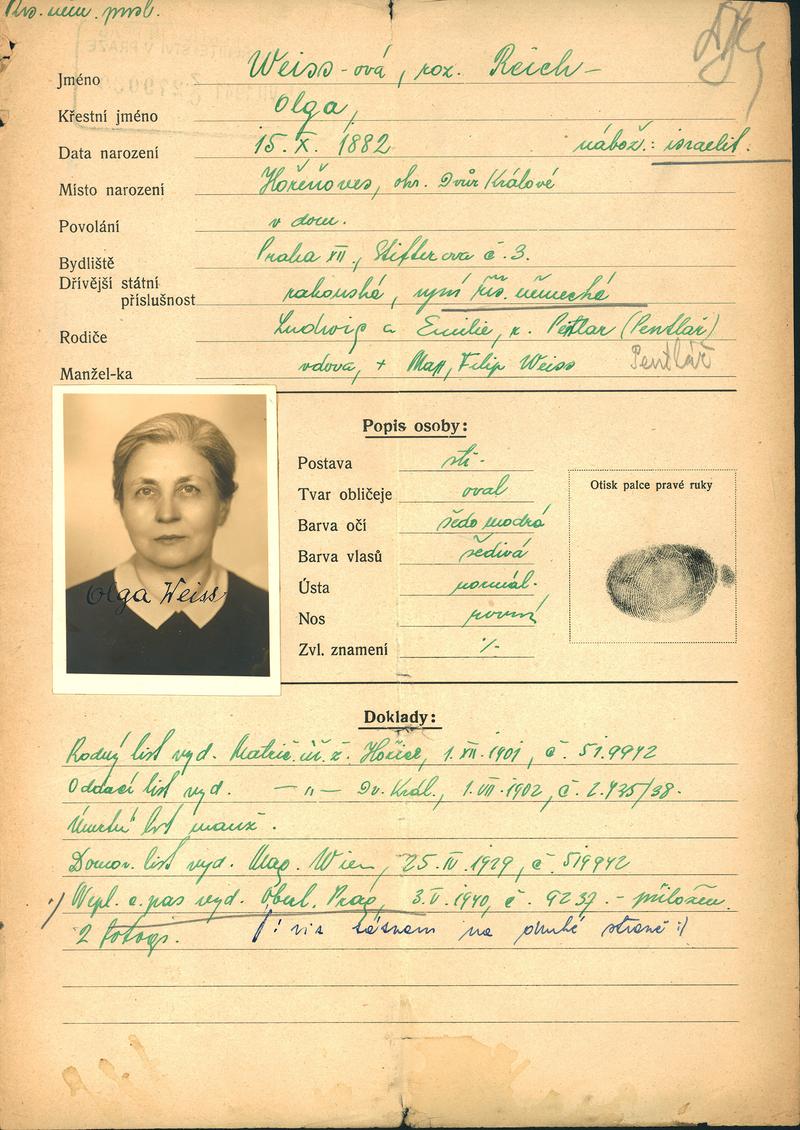 Jméno Weiss-ová, roz. Reich-
Křestní jméno Olga,
Data narození 15. X. 1882 nábož.: israelit.
Místo narození Hořeňoves, okr. Dvůr Králové
Povolání v dom.
Bydliště Praha XII., Stifterova č. 3.
Dřívější státní
příslušnost rakouská, nyní říš. německá
Rodiče Ludwig a Emilie, r. (Pentlář)
Pentlář
Manžel-ka vdova, + Filip Weiss
Popis osoby:
Postava stř.
Tvar obličeje oval
Barva očí šedomodrá
Barva vlasů šedivá
Ústa normál.
Nos rovný
Zvl. znamení ./.
Otisk palce pravé ruky
Olga Weiss
Doklady:
Rodný list vyd. Matrič. úř. ž. Hořice, 1. XII. 1901, č. 519942
Oddací list vyd. — „ — Dv. Král., 1. VII. 1902, č. 2.435/38.
Úmrtní list manž.
Domov. list vyd. Mag. Wien, 25. IV. 1929, č. 519942
c. pas vyd. Oberl. Prag, 3. V. 1940, č. 9237. - přiložen.
2 fotogr. /: viz záznam na druhé straně :/